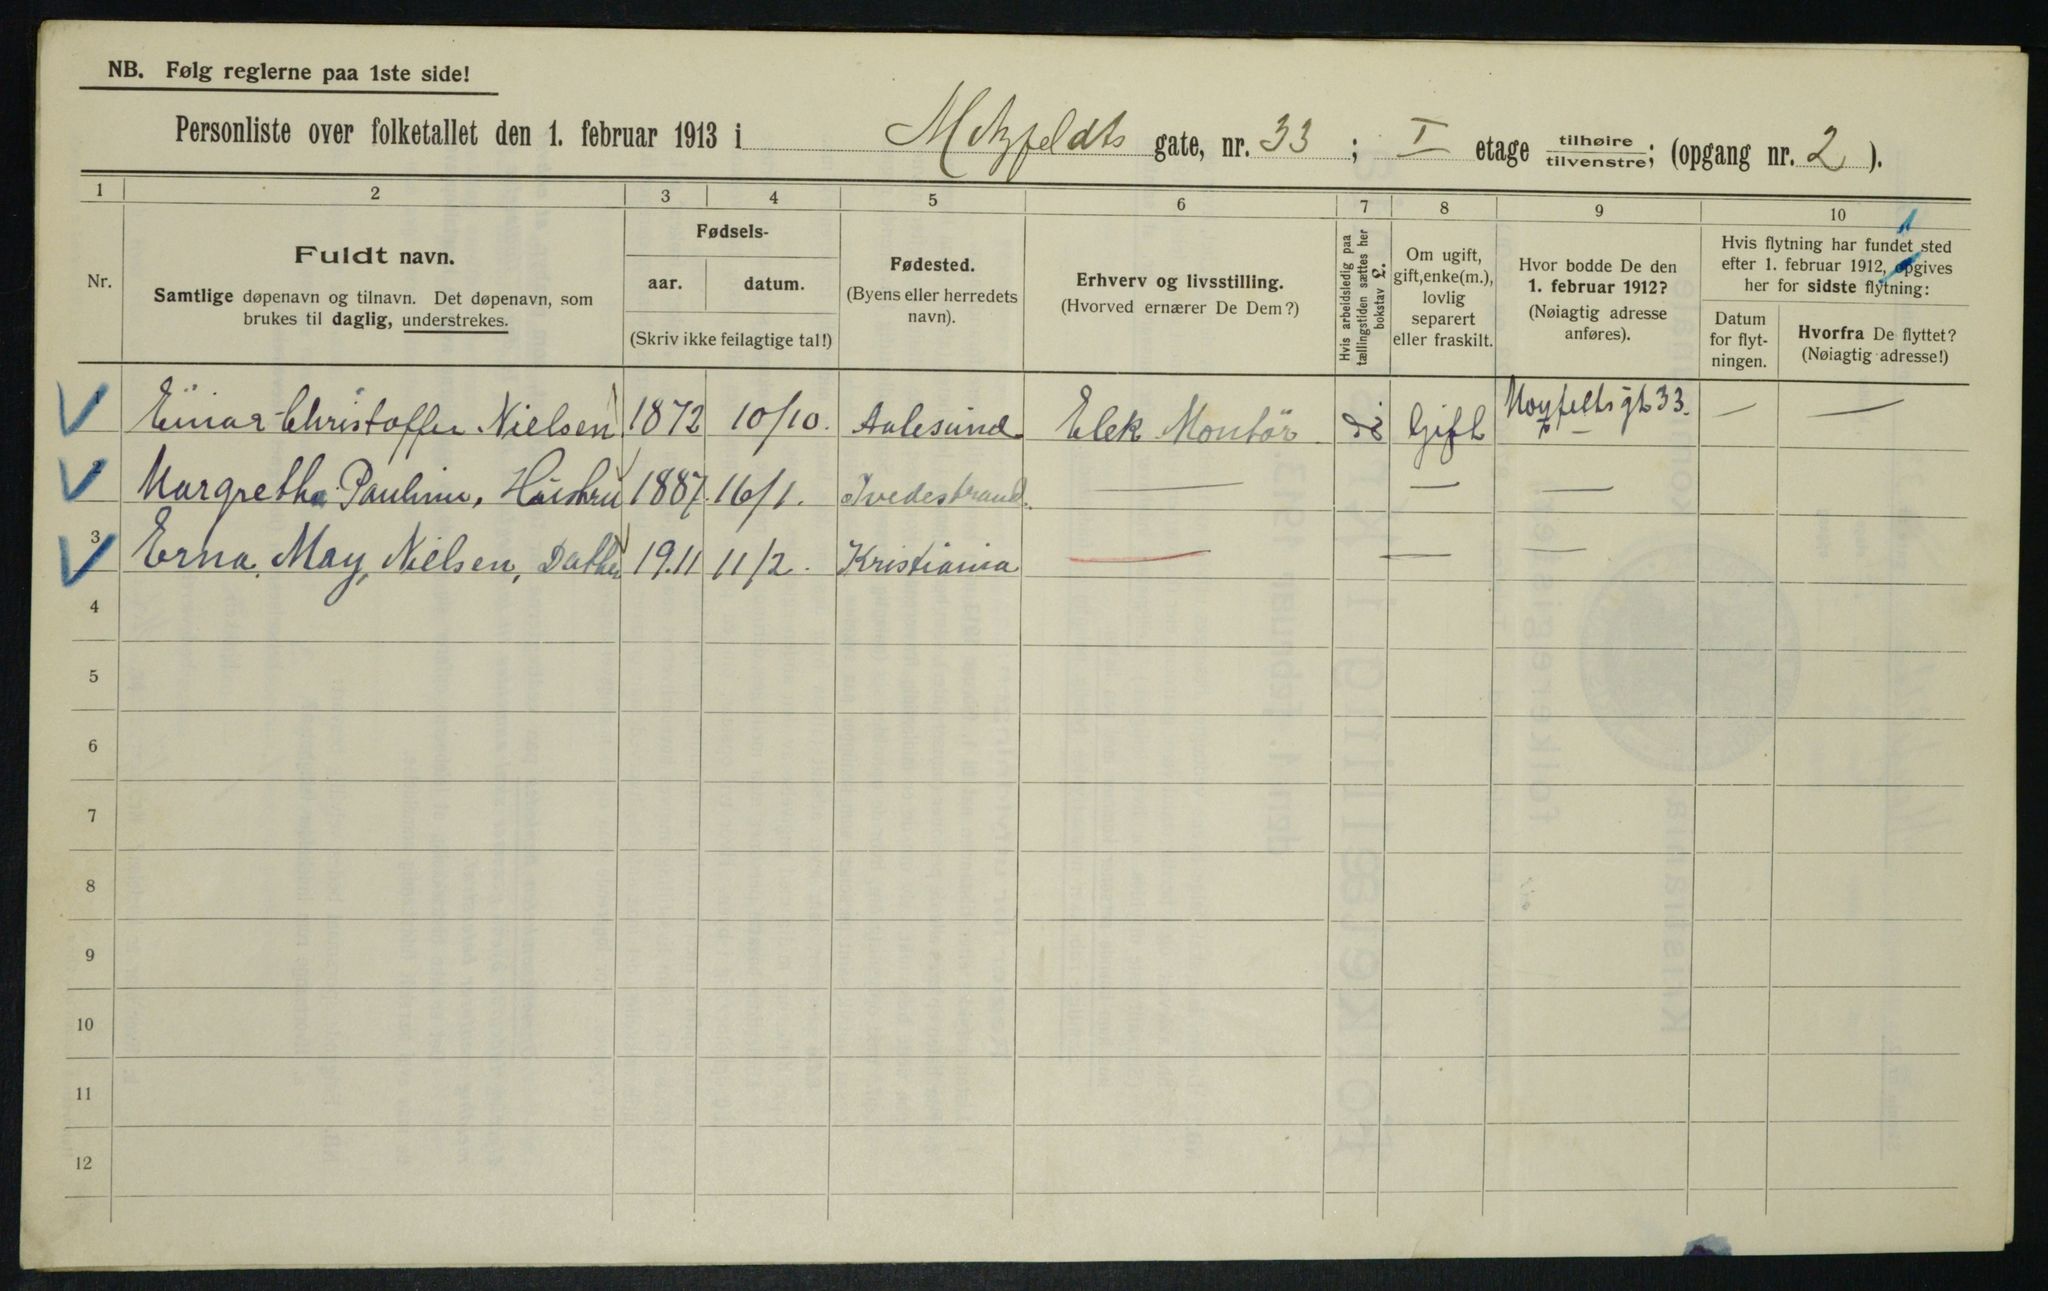 NB. Følg reglerne paa 1ste side!
Personliste over folketallet den 1. februar 1913 i Motzfeldts gate, nr. 33 ; I etage tilhøire/tilvenstre; (opgang nr. 2 ).
1 2 3 4 5 6 7 8 9 10
Nr.
Fuldt navn.
Samtlige døpenavn og tilnavn. Det døpenavn, som
brukes til daglig, understrekes.
Fødsels-
aar. datum.
(Skriv ikke feilagtige tal!)
Fødested.
(Byens eller herredets
navn).
Erhverv og livsstilling.
(Hvorved ernærer De Dem?)
Hvis arbeidsledig paa
tællingstiden sættes her
bokstav L.
Om ugift,
gift, enke(m.),
lovlig
separert
eller fraskilt.
Hvor bodde De den
1. februar 1912?
(Nøiagtig adresse
anføres).
Hvis flytning har fundet sted
efter 1. februar 1912, opgives
her for sidste flytning:
Datum
for flyt-
ningen.
Hvorfra De flyttet?
(Nøiagtig adresse!)
Einar Christoffer Nielsen 1872 10/10. Aalesund Elek Montör Gift gt 33. — —
Margrethe Pauline, Hustru 1887 16/1. Tvedestrand. — — —
3 Erna May, Nielsen, Datter 1911 11/2. Kristiania — — —
4
5
6
7
8
9
10
11
12